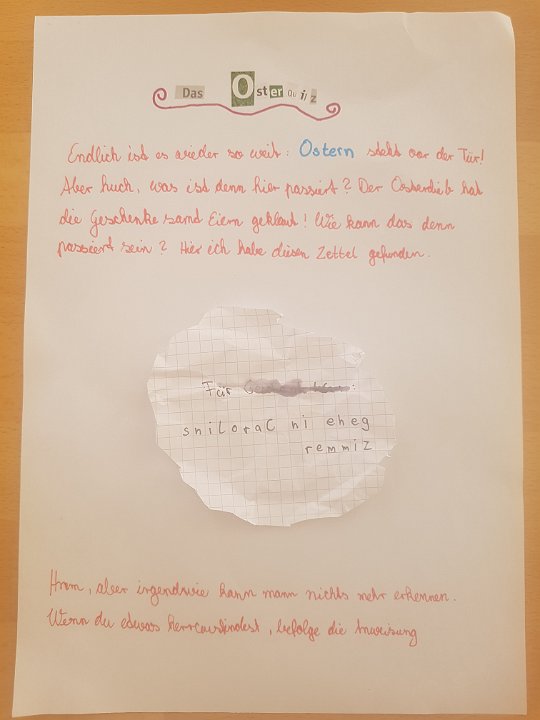 Das Oster Quiz
Endlich ist es wieder so weit: Ostern steht vor der Tür!
Aber huch, was ist denn hier passiert? Der Osterdieb hat
die Geschenke samd Eiern geklaut! Wie kann das denn
passiert sein? Hier ich habe diesen Zettel gefunden.
Für
sniloraC ni eheg
remmiZ
Hmm, aber irgendwie kann mann nichts mehr erkennen.
Wenn du etwas herrausfindest, befolge die Anweisung